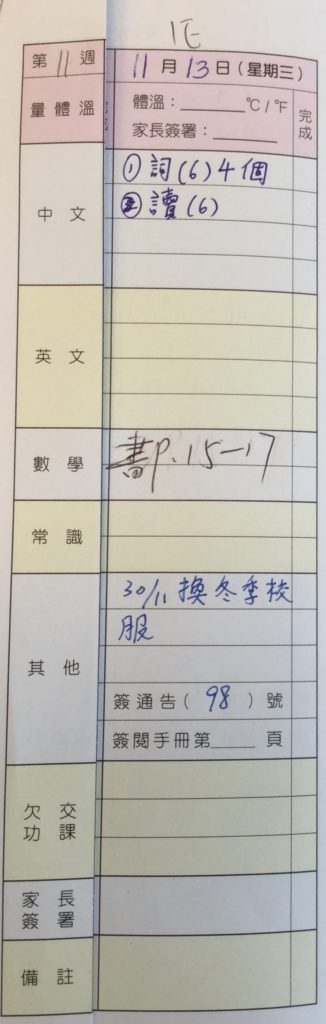 1E
第 11 週
11 月 13 日 (星期三)
量體溫
體溫：______℃/℉
家長簽署：______
完成
中文
① 詞(6) 4個
② 讀(6)
英文
數學
書P.15-17
常識
其他
30/11 換冬季校
服
簽通告( 98 )號
簽閱手冊第____頁
欠交
功課
家長
簽署
備註